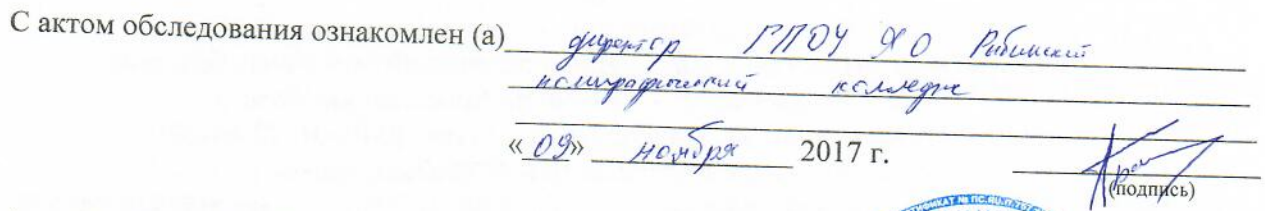 С актом обследования ознакомлен (а) директор ГПОУ ЯО Рыбинский
полиграфический колледж
«09» ноября 2017 г.
(подпись)